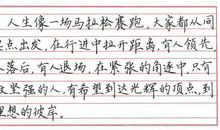 人生像一场马拉松赛跑,大家都从同
起点出发,在行进中拉开距离,有人领先,
人落后,有人退场,在紧张的角逐中,只有
坚强的人,有希望到达光辉的顶点,到
理想的彼岸。